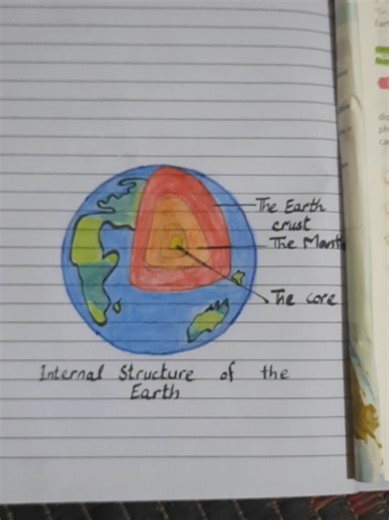 The Earth
crust
The Mant
The core
Internal Structure of the
Earth